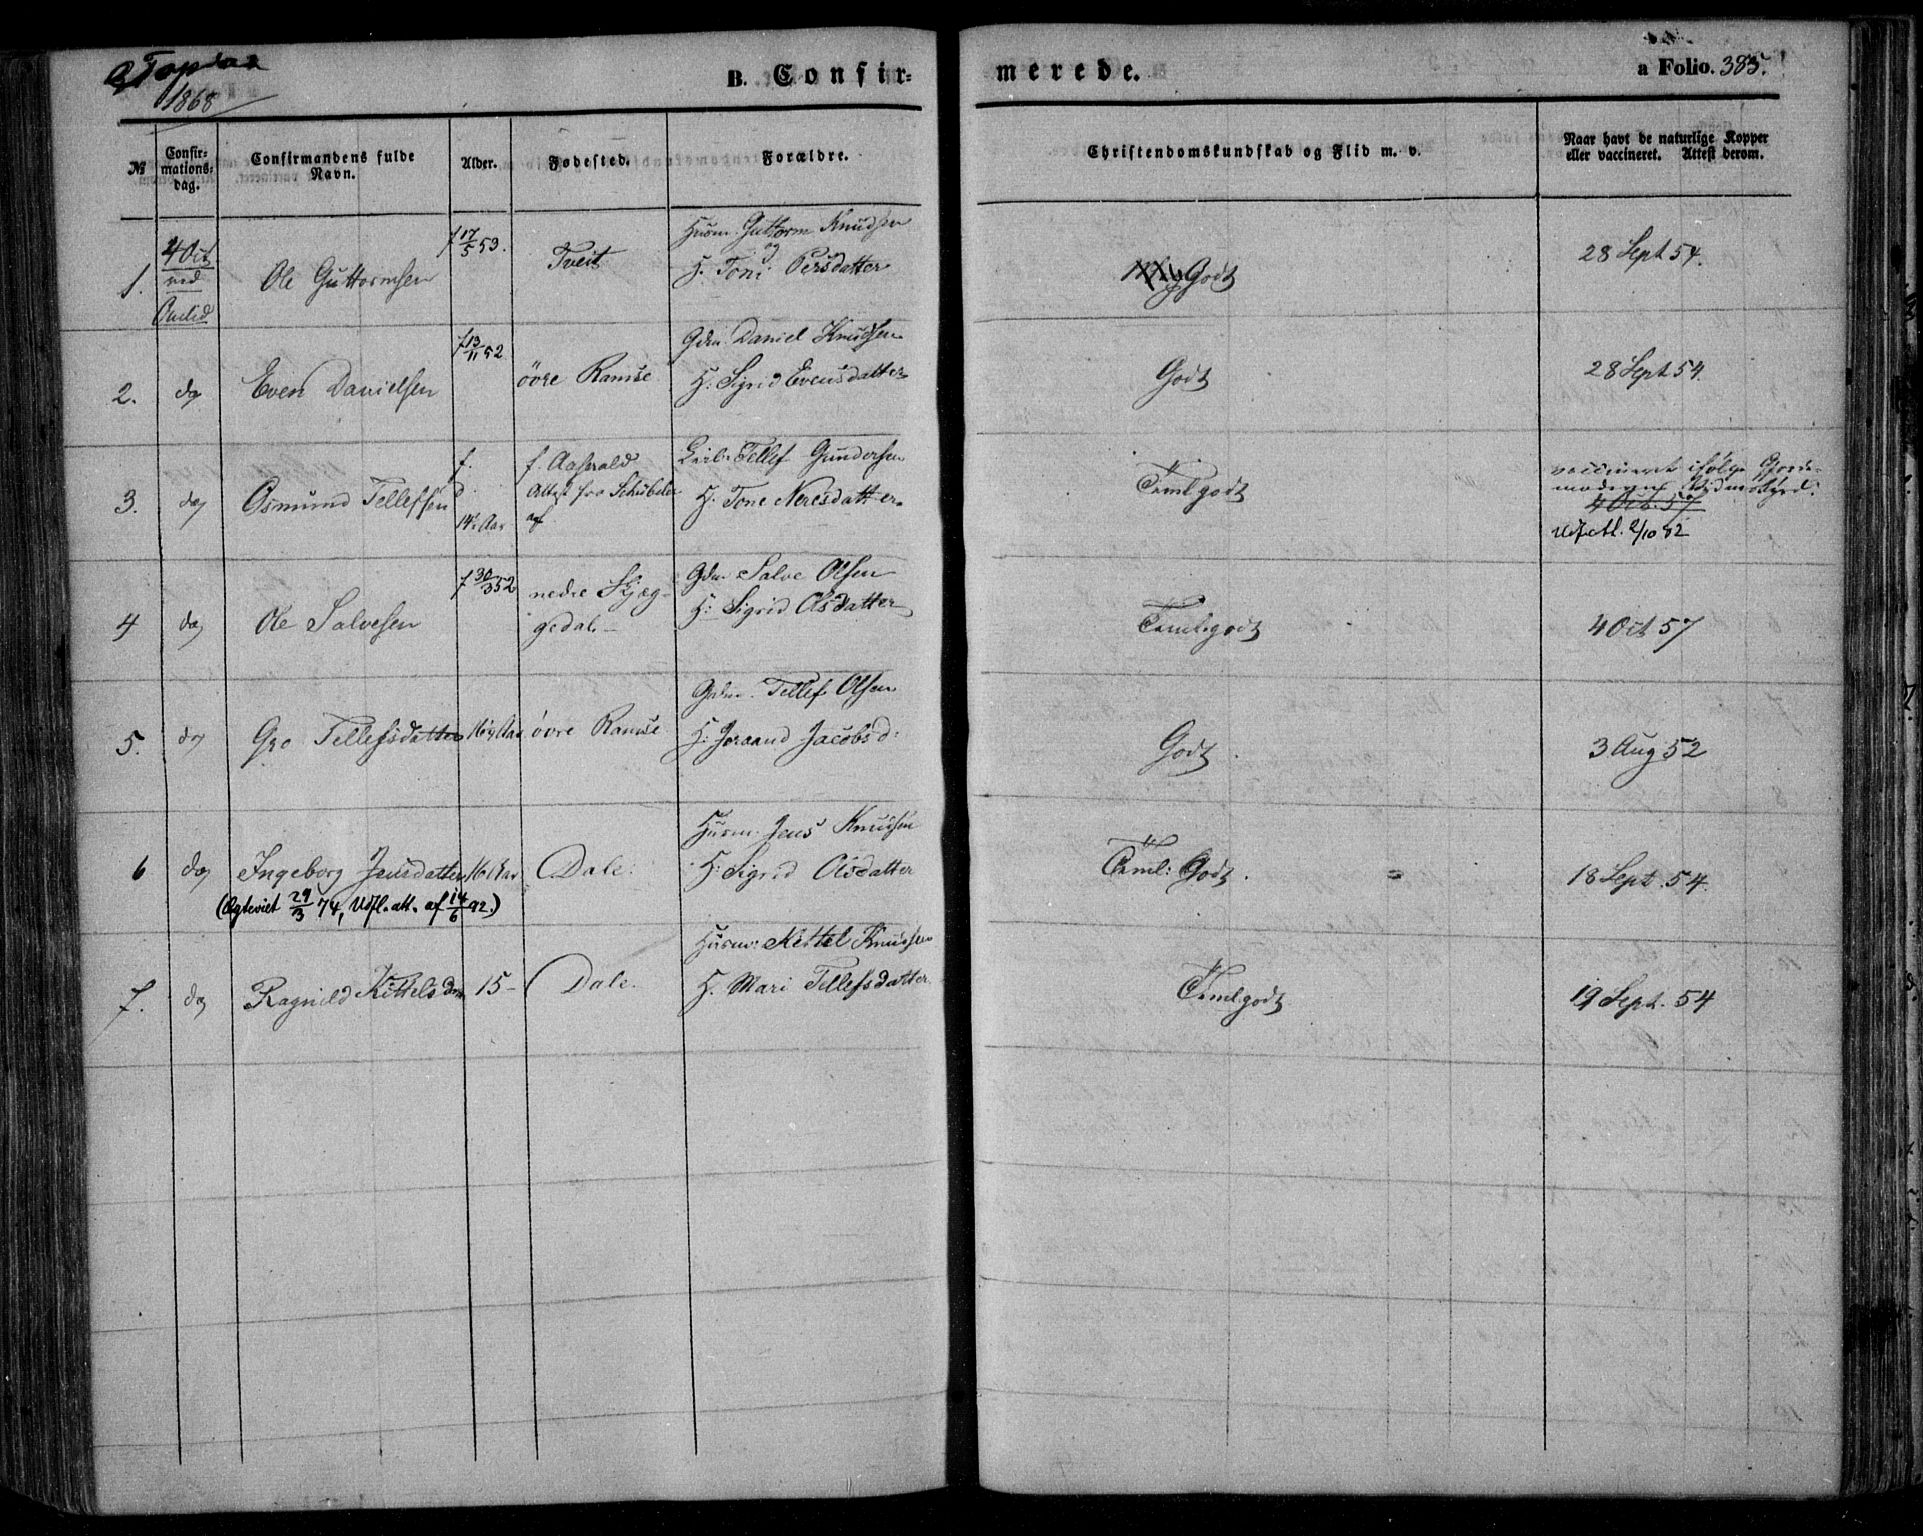 1868
B. Confir-
merede.
a Folio. 385.
№
Confir-
mations-
dag.
Confirmandens fulde
Navn.
Alder.
Fødested.
Forældre.
Christendomskundskab og Flid m. v.
Naar havt de naturlige Kopper
eller vaccineret. Attest derom.
1.
4 Oct
ved
Ole Guttormsen
f 17/5 53.
Tveit
Husm. Guttorm Knudsen
og
H. Toni Persdatter
Godt
28 Sept 54.
2.
do
Even Danielsen
f 13/11 52
övre Ramse
Gdm. Daniel Knudsen
H. Sigrid Evensdatter
Godt
28 Sept 54.
3.
do
Osmund Tellefsen
f.
14½ Aar
f. Aaserald
Attest fra Schübeler
af
Tellef Gundersen
H. Tone Neresdatter
Teml godt
vaccineret ifølge Gjorde-
moderens Vidnesbyrd.
4 Oct. 57
Udfl. att. 2/10 82
4
do
Ole Salvesen
f 30/3 52
nedre Skjæg-
gedal.
Gdm Salve Olsen
H: Sigrid Olsdatter
Teml. godt
4 Oct 57
5.
do
Gro Tellefsdatter
16½ Aar
övre Ramse
Gdm. Tellef Olsen
H: Joraand Jacobsd:
Godt.
3 Aug 52
6
do
Ingeborg Jensdatter
16 Aar
Dale.
Husm. Jens Knudsen
H: Sigrid Olsdatter
Teml: Godt.
18 Sept. 54.
(Ægteviet 29/3 74, Udfl. att. af 14/6 92.)
7.
do
Ragnild Kittelsdtr
15-
Dale.
Husm: Kittel Knudsen
H. Mari Tellefsdatter
Teml godt
19 Sept. 54